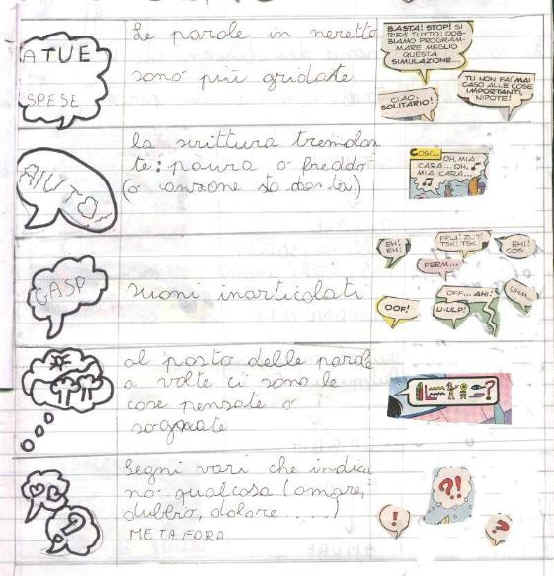 A TUE
SPESE
Le parole in neretto
sono più gridate
BASTA! STOP! SI
TUTTO! DOB-
BIAMO PROGRAM-
MARE MEGLIO
QUESTA
SIMULAZIONE...
CIAO,
SOLITARIO!
TU NON FAI MAI
CASO ALLE COSE
IMPORTANTI,
NIPOTE!
AIUTO
la scrittura tremolan
te: paura o freddo
(o canzone sta
COSÌ... OH, MIA
CASA... OH,
MIA CARA...
GASP
suoni inarticolati
EH!
EH!
TSK! TSK!
EH!
PERM...
OOF!
OFF... AH!
U-ULP!
al posto delle parole
a volte ci sono le
cose pensate o
sognate
?
Segni vari che indica
no qualcosa (amore,
dubbio, dolore ....)
METAFORA
?
!
?!
?